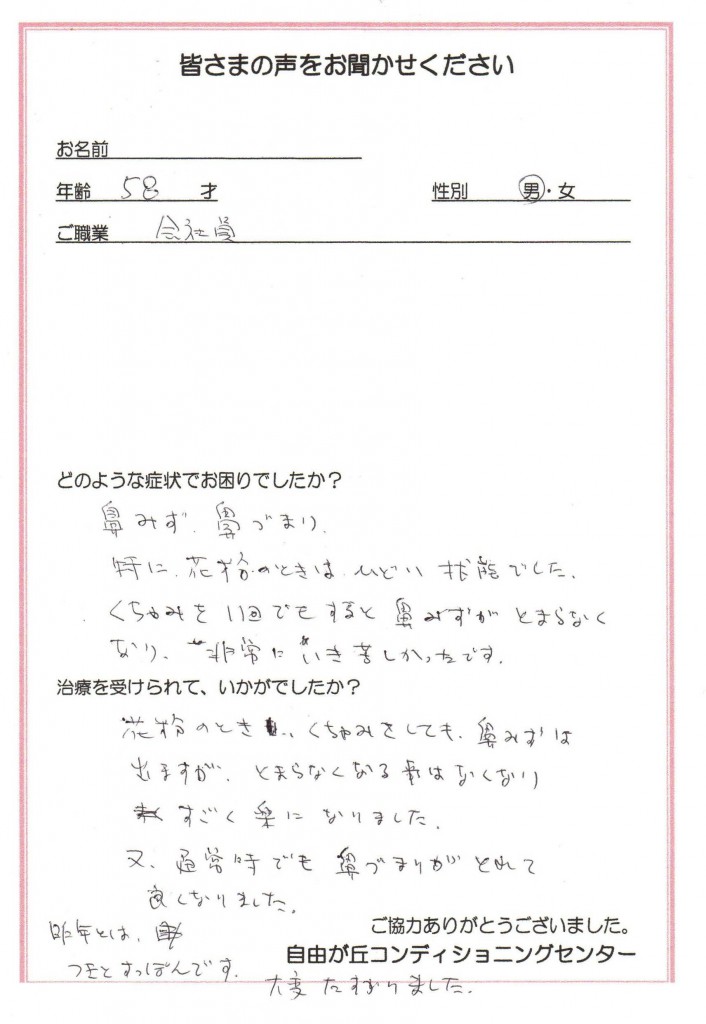 皆さまの声をお聞かせください
お名前
年齢 58 才 性別 男・女
ご職業 会社員
どのような症状でお困りでしたか？
鼻みず、鼻づまり、
特に、花粉のときは、ひどい状態でした、
くちゃみを1回でもすると鼻みずがとまらなく
なり、非常にいき苦しかったです。
治療を受けられて、いかがでしたか？
花粉のとき、くちゃみをしても、鼻みずは
出ますが、とまらなくなる事はなくなり
すごく楽になりました、
又、通常時でも鼻づまりがとれて
良くなりました。
昨年とは、
つきとすっぽんです。
ご協力ありがとうございました。
自由が丘コンディショニングセンター
大変たすかりました、